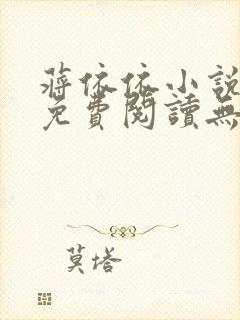 蔣依依小說
免費閱讀無
莫塔